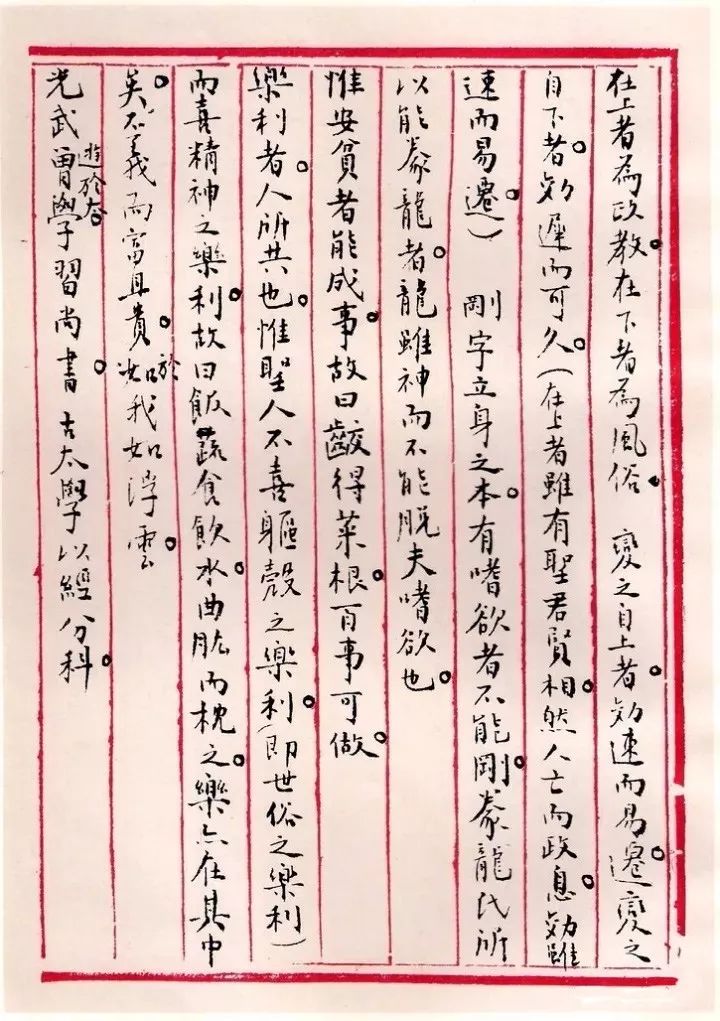 在上者為政教。在下者為風俗。 變之自上者。効速而易遷。變之
自下者。効遲而可久。(在上者雖有聖君賢相。然人亡而政息。効雖
速而易遷。) 剛字立身之本。有嗜欲者不能剛。豢龍氏所
以能豢龍者。龍雖神而不能脱夫嗜欲也。
惟安貧者能成事。故曰齩得菜根。百事可做。
樂利者。人所共也。惟聖人不喜軀殼之樂利。(即世俗之樂利)
而喜精神之樂利。故曰飯蔬食飲水。曲肱而枕之。樂亦在其中
矣。不義而富且貴。於我如浮雲。
光武遊於太學。習尚書。 古太學以經分科。